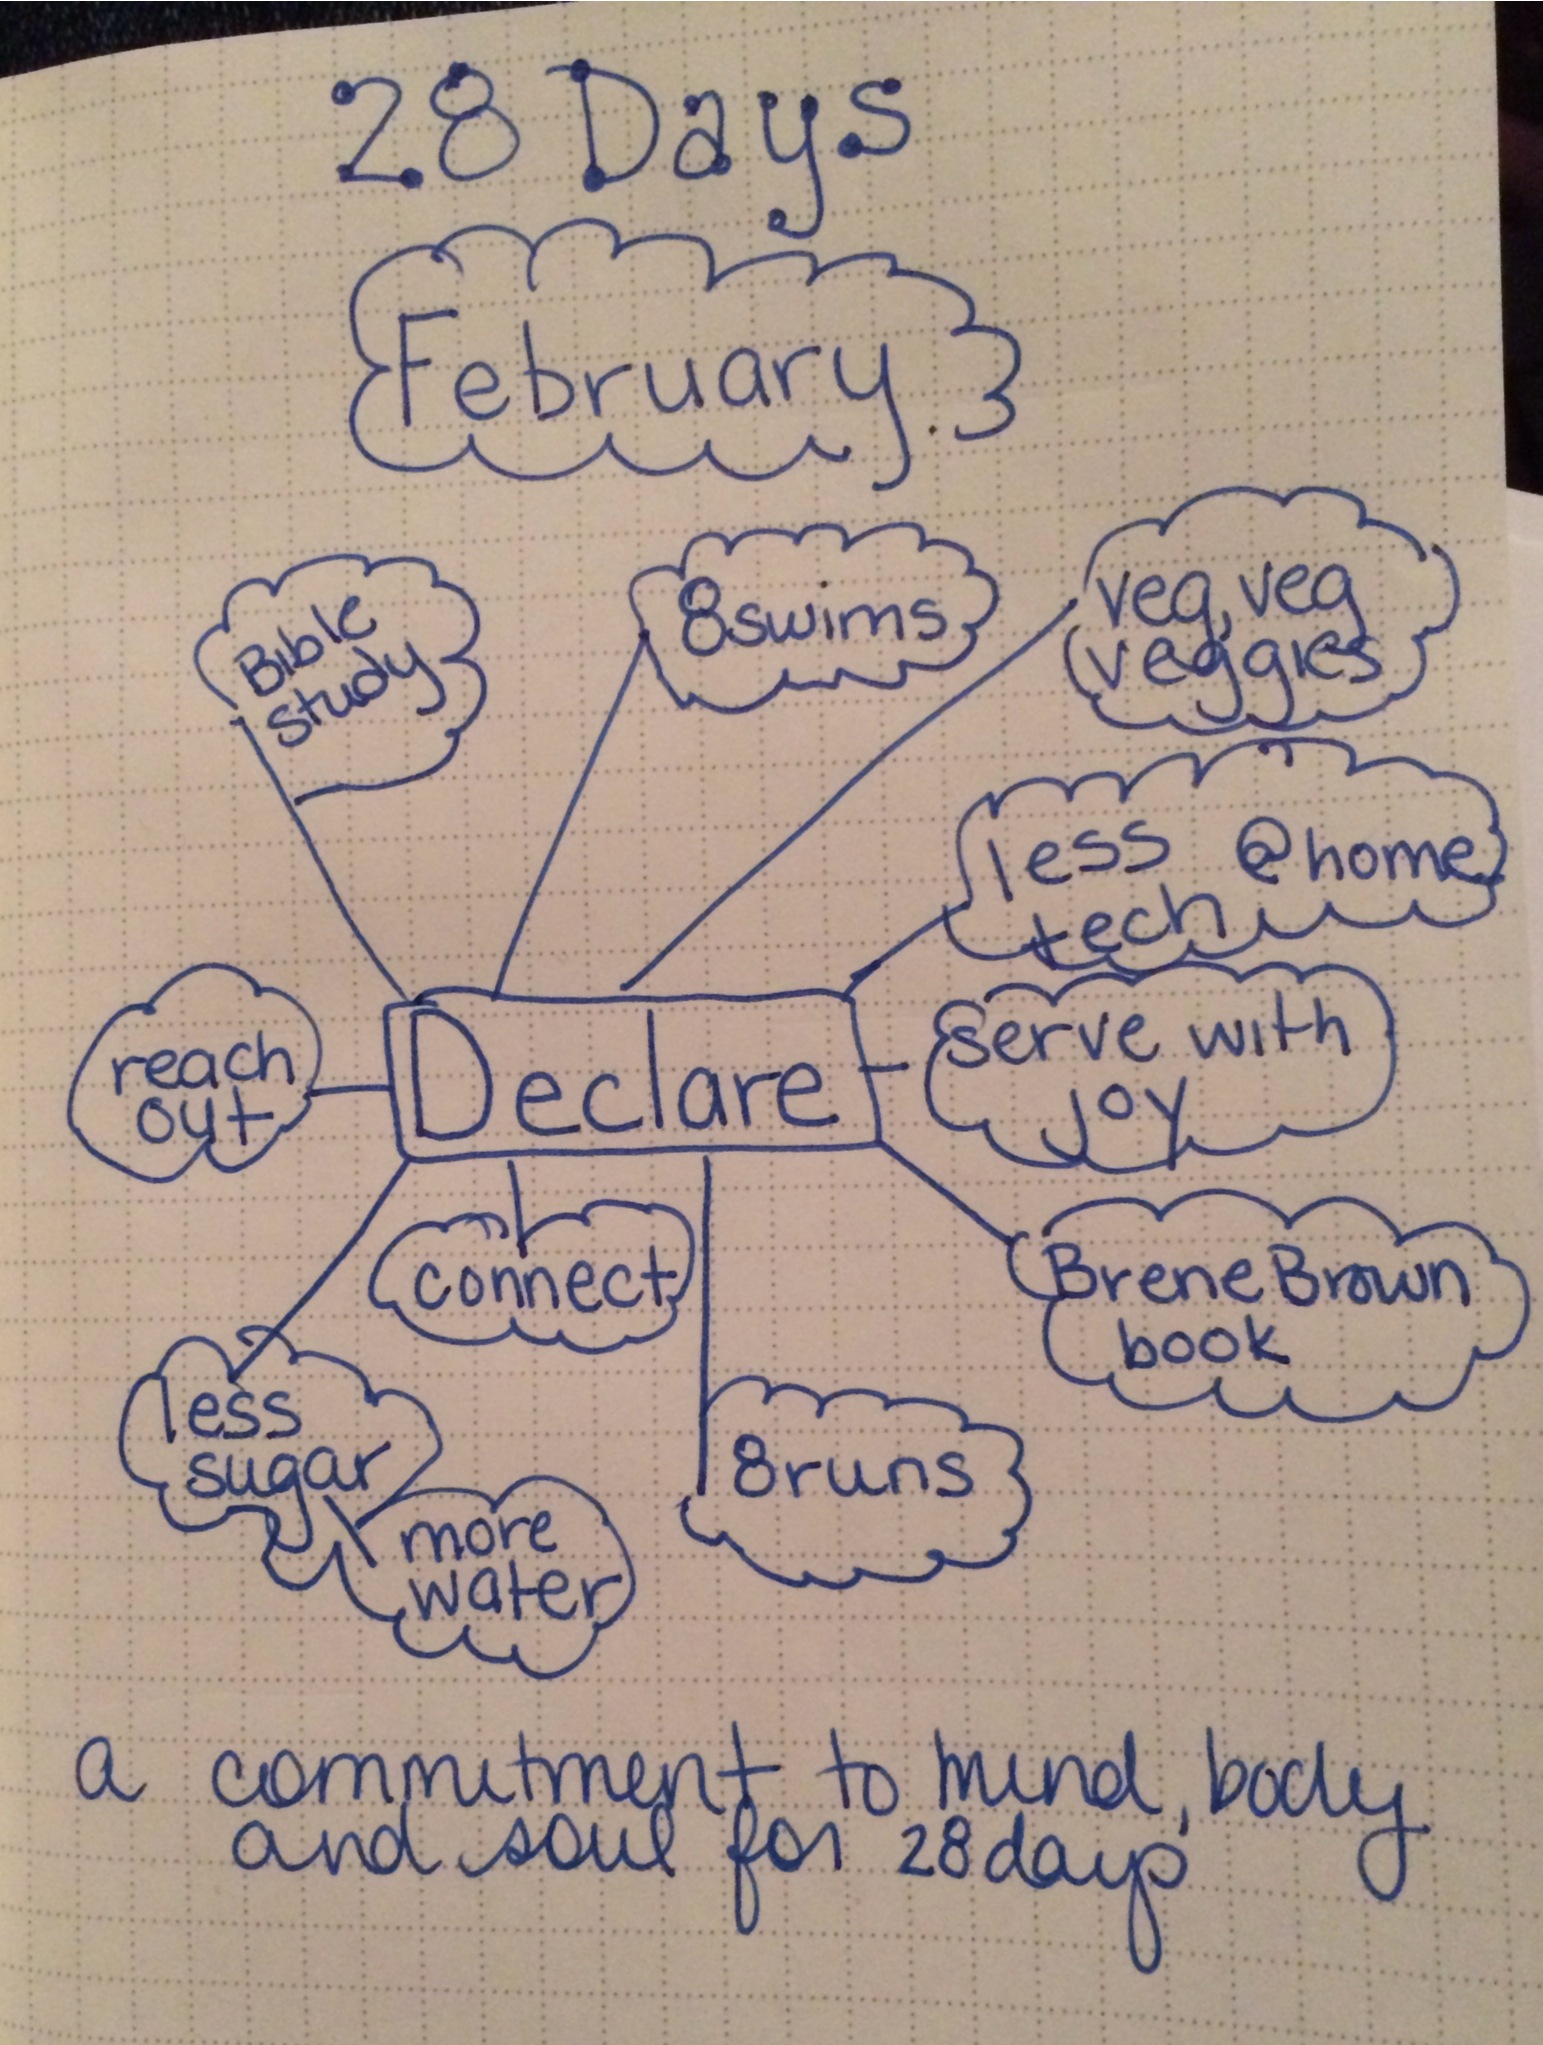 28 Days
February
Bible
study
8 swims
veg, veg
veggies
less @home
tech
reach
out
Declare
serve with
joy
connect
Brene Brown
book
less
sugar
8 runs
more
water
a commitment to mind, body
and soul for 28 days